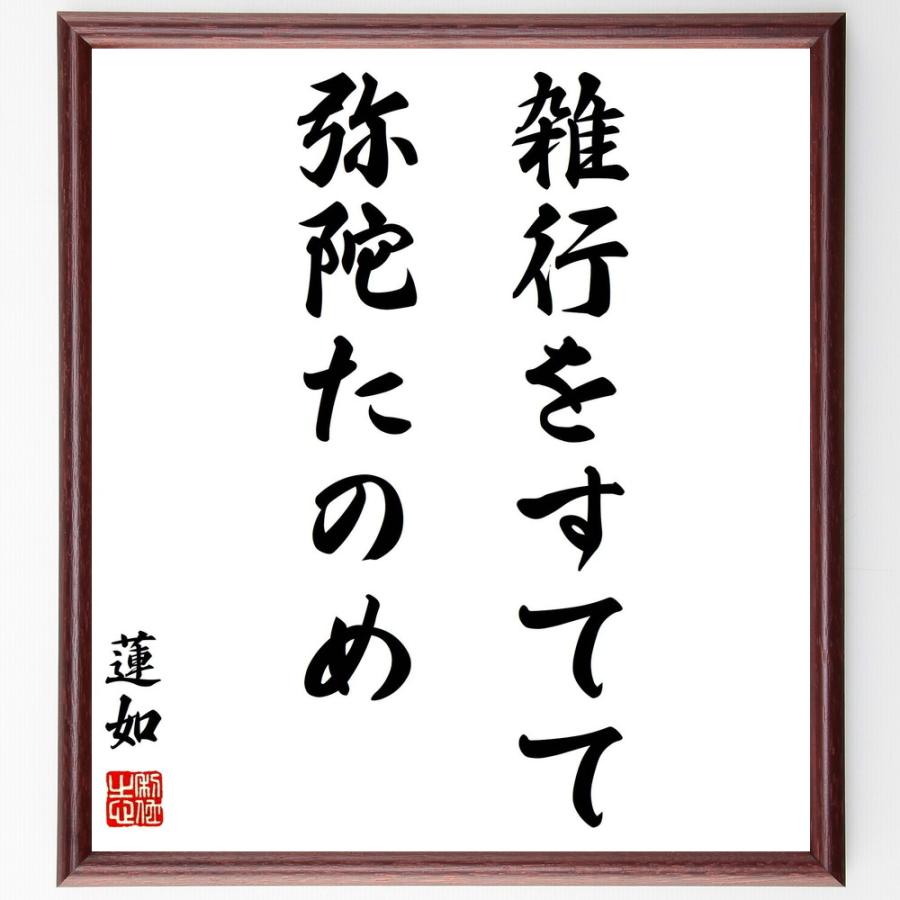 雑行をすてて
弥陀たのめ
蓮如